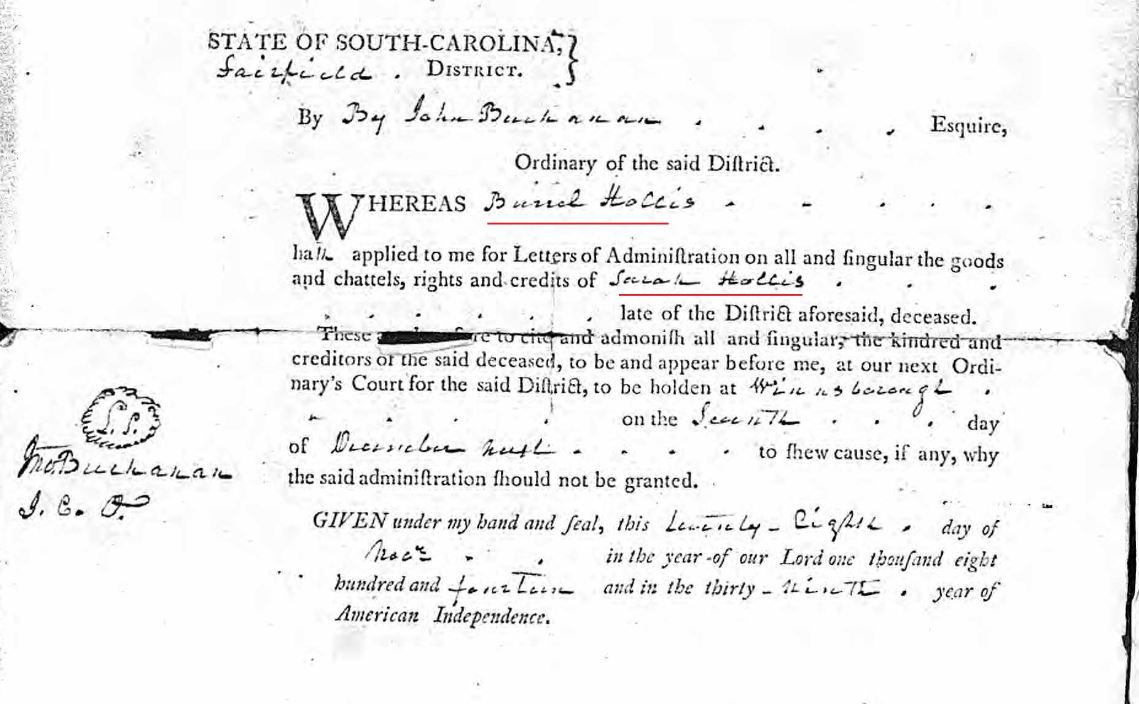 STATE OF SOUTH-CAROLINA,}
Fairfield . DISTRICT.
By By John Buchanan . . . Esquire,
Ordinary of the said Diſtrict.
WHEREAS Burrel Hollis - - . . .
hath applied to me for Letters of Adminiſtration on all and ſingular the goods
and chattels, rights and credits of Sarah Hollis . . .
. . . . . late of the Diſtrict aforeſaid, deceased.
Theſe are to cite and admoniſh all and ſingular, the kindred and
creditors of the said deceaſed, to be and appear before me, at our next Ordi-
nary's Court for the said Diſtrict, to be holden at Winnsborough .
. . . on the Seventh . . . day
of December next . . . . to ſhew cauſe, if any, why
the said adminiſtration ſhould not be granted.
L.S.
Jno. Buchanan
GIVEN under my hand and ſeal, this twenty-Eighth . day of
Novr . . . in the year of our Lord one thouſand eight
hundred and fourteen and in the thirty-ninth . year of
American Independence.